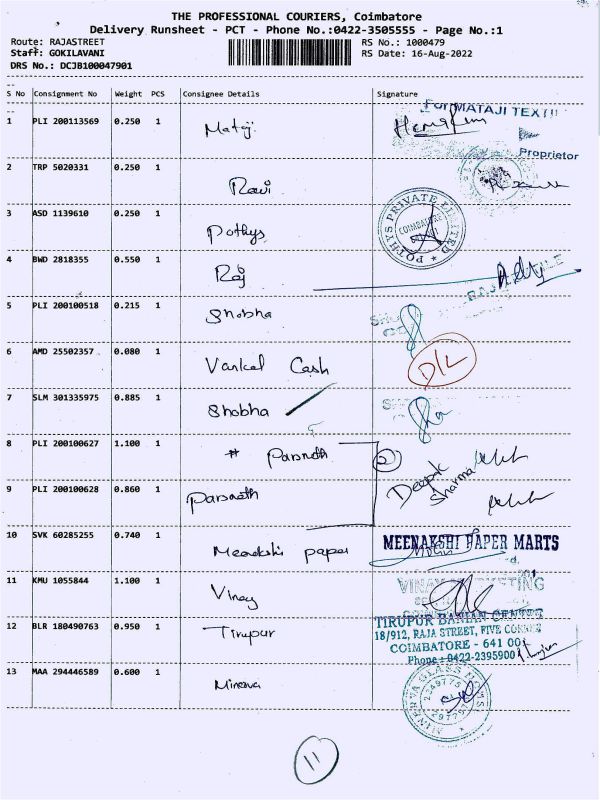 THE PROFESSIONAL COURIERS, Coimbatore
Delivery Runsheet - PCT - Phone No.:0422-3505555 - Page No.:1
Route: RAJASTREET RS No.: 1000479
Staff: GOKILAVANI RS Date: 16-Aug-2022
DRS No.: DCJB100047901
S No Consignment No Weight PCS Consignee Details Signature
For MATAJI TEXT
1 PLI 200113569 0.250 1 Mataji
Proprietor
2 TRP 5020331 0.250 1
Ravi
3 ASD 1139610 0.250 1 Pothys POTHYS PRIVATE LIMITED COIMBATORE
4 BWD 2818355 0.550 1 Raj
5 PLI 200100518 0.215 1 Shobha
6 AMD 25502357 0.080 1 Vankal Cash D/L
7 SLM 301335975 0.885 1 Shobha
8 PLI 200100627 1.100 1 # Parsnath 2
Deepak Sharma
9 PLI 200100628 0.860 1 Parsnath
10 SVK 60285255 0.740 1 Meenakshi paper MEENAKSHI PAPER MARTS
11 KMU 1055844 1.100 1 Vinay VINAY MARKETING
12 BLR 180490763 0.950 1 Tirupur TIRUPUR BANIAN CENTRE
18/912, RAJA STREET, FIVE CORNER
COIMBATORE - 641 001
Phone : 0422-2395900
13 MAA 294446589 0.600 1 Minerva MINERVA GLASS MARTS
11